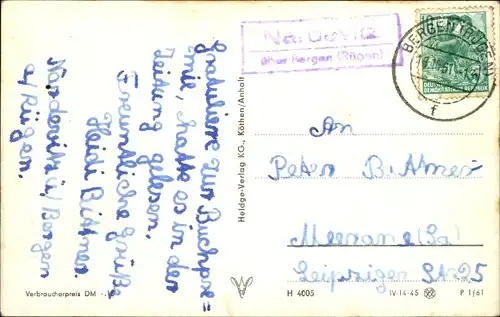 Gratuliere zur Buchprä=
mie, hatte es in der
Zeitung gelesen.
Freundliche Grüße
Heidi Bittner
Nardevitz ü/Bergen
a/Rügen.
Verbraucherpreis DM -.
Heldge-Verlag KG., Köthen/Anhalt
über Bergen (Rügen)
10
DEUTSCHE
DEMOKRATISCHE REPUBLIK
BERGEN (RÜGEN)
f
An
Peter Bittner
Meerane (Sa)
Leipziger Str 25
H 4005
IV-14-45
P 1/61